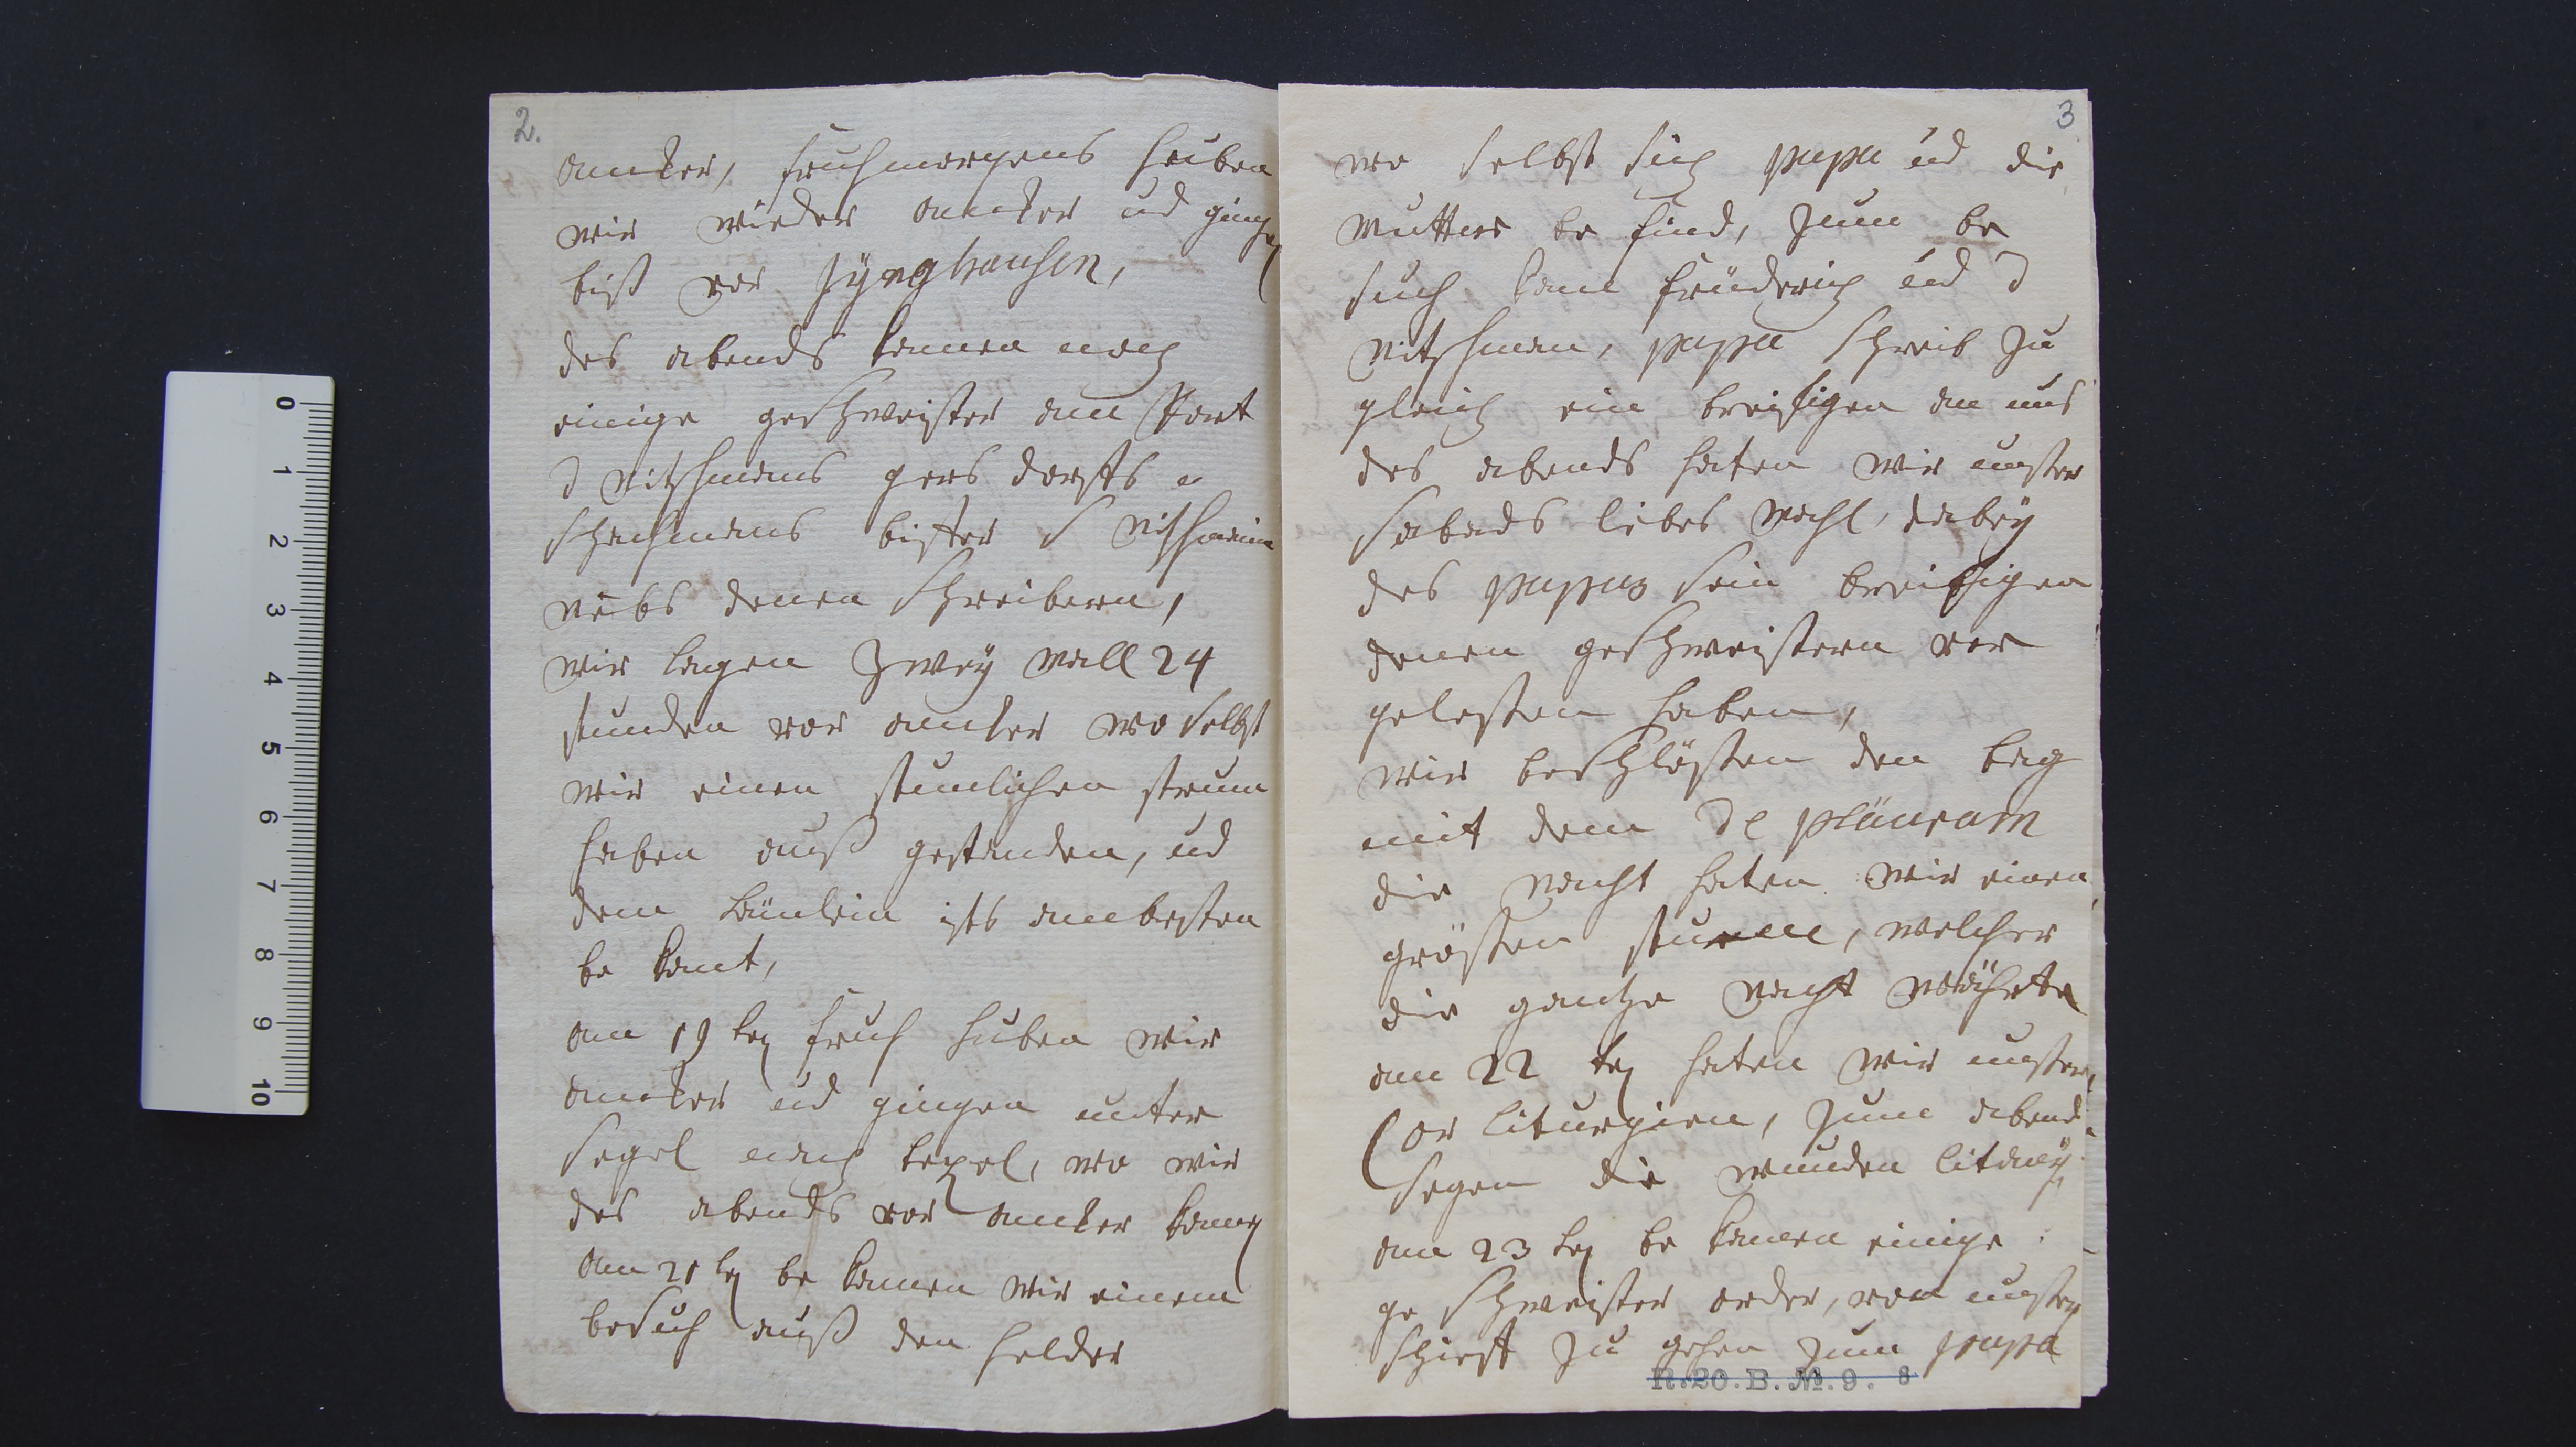 2.
ancker, fruhmorgens huben
wir wieder ancker ud gingen
biß vor Jÿrghausen,
des abends kamen noch
einige geschweister am Port
D nitschmans gersdorffs u
schachmans bister S nitschmann
nebs denen schreibern,
wir lagen Zwey mall 24
stunden vor ancker wo selbst
wir einen stimlichen strum
haben auß gestanden, ud
dem Lämlein ists am besten
be kant,
am 19 ten fruh huben wir
ancker ud gingen unter
segel nach texel, wo wir
des abends vor ancker kamen
am 21 ten be kamen wir einem
besuch auß den helder
3
wo selbst sich papa ud die
mutter be find, Zum be
such kam friederich ud D
nitschman, papa schreib Zu
gleich ein breifigen an uns
des abends haten wir unßer
sabads liebes mahl, dabey
des papas sein breifigen
denen geschweistern vor
geleßen haben,
wir beschloßen den tag
mit dem Te pläuram
die nacht haten wir einen
großen sturm, welcher
die gantze nacht währte
am 22 ten haten wir unßer
Cor liturgien, Zum abend
segen die wunden litaney
am 23 ten be kamen einige
ge schweister order, von unßern
schieff Zu gehen Zum papa
R.20.B.No.9.
0 1 2 3 4 5 6 7 8 9 10